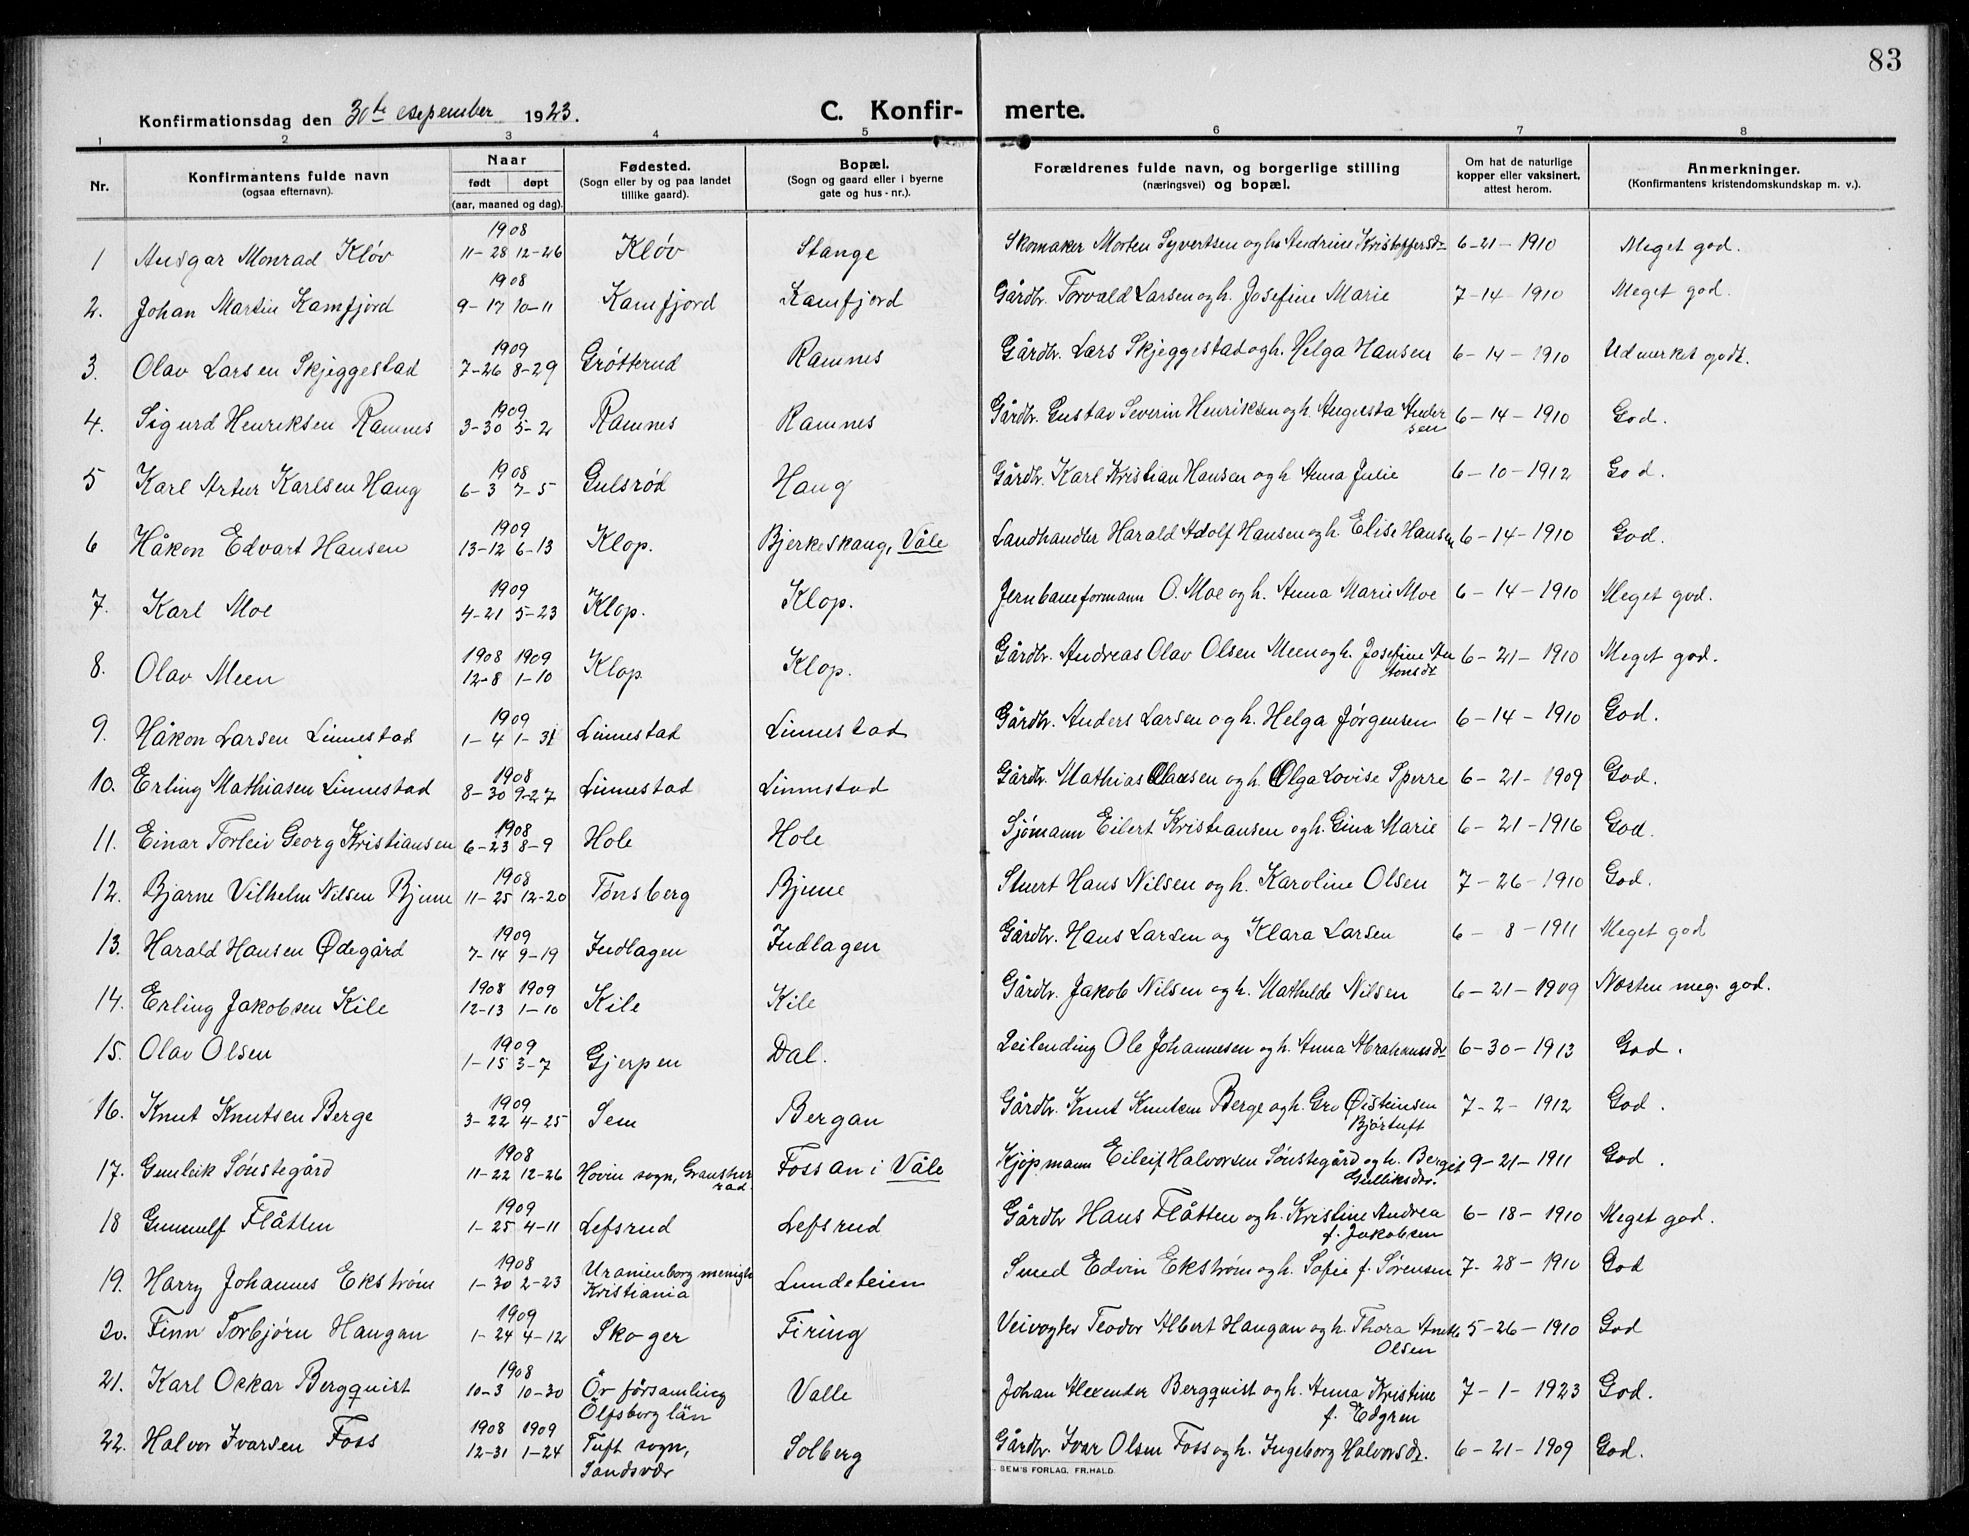 83
Konfirmationsdag den 30te september 1923.
C. Konfirmerte.
1 2 3 4 5 6 7 8
Nr.
Konfirmantens fulde navn (ogsaa efternavn).
Naar født døpt (aar, maaned og dag).
Fødested. (Sogn eller by og paa landet tillike gaard).
Bopæl. (Sogn og gaard eller i byerne gate og hus-nr.).
Forældrenes fulde navn, og borgerlige stilling (næringsvei) og bopæl.
Om hat de naturlige kopper eller vaksinert, attest herom.
Anmerkninger. (Konfirmantens kristendomskundskap m. v.).
1 Ansgar Monrad Kløv 1908 11-28 12-26 Kløv Stange Skomaker Morten Syvertsen og h. Andrine Kristoffersdr 6-21-1910 Meget god.
2. Johan Martin Kamfjord 1908 9-17 10-11 Kamfjord Kamfjord Gårdbr. Torvald Larsen og h. Josefine Marie 7-14-1910 Meget god.
3. Olav Larsen Skjeggestad 1909 7-26 8-29 Grøtterud Ramnes Gårdbr. Lars Skjeggestad og h. Helga Hansen 6-14-1910 Udmerket godt.
4. Sigurd Henriksen Ramnes 1909 3-30 5-2 Ramnes Ramnes Gårdbr. Gustav Severin Henriksen og h. Augusta Andersen 6-14-1910 God.
5 Karl Artur Karlsen Haug 1908 6-3 7-5 Gulsrød Haug Gårdbr. Karl Kristian Hansen og h Anna Julie 6-10-1912 God.
6 Håkon Edvart Hansen 1909 13-12 6-13 Klop. Bjerkeskaug, Våle Landhandler Harald Adolf Hansen og h. Elise Hansen 6-14-1910 God.
7. Karl Moe 1909 4-21 5-23 Klop. Klop. Jernbaneformann O. Moe og h. Anna Marie Moe 6-14-1910 Meget god.
8. Olav Meen 1908 1909 12-8 1-10 Klop Klop. Gårdbr. Andreas Olav Olsen Meen og h. Josefine Antonsdr 6-21-1910 Meget god.
9. Håkon Larsen Linnestad 1909 1-4 1-31 Linnestad Linnestad Gårdbr. Anders Larsen og h. Helga Jørgensen 6-14-1910 God.
10. Erling Mathiasen Linnestad 1908 8-30 9-27 Linnestad Linnestad Gårdbr. Mathias Clausen og h. Olga Lovise Sperre 6-21-1909 God.
11. Einar Torleiv Georg Kristiansen 1908 6-23 8-9 Hole Hole Sjømann Eilert Kristiansen og h. Gina Marie 6-21-1916 God.
12. Bjarne Vilhelm Nilsen Bjune 1908 11-25 12-20 Tønsberg Bjune Stuert Hans Nilsen og h. Karoline Olsen 7-26-1910 God.
13. Harald Hansen Ødegård 1909 7-14 9-19 Indlagen Indlagen Gårdbr. Hans Larsen og Klara Larsen 6-8-1911 Meget god
14. Erling Jakobsen Kile 1908 1909 12-13 1-10 Kile Kile Gårdbr. Jakob Nilsen og h. Mathilde Nilsen 6-21-1909 Næsten meg. god.
15. Olav Olsen 1909 1-15 3-7 Gjerpen Dal. Leilending Ole Johannesen og h. Anna Abrahamsdr 6-30-1913 God.
16. Knut Knutsen Berge 1909 3-22 4-25 Sem Bergan Gårdbr. Knut Knutsen Berge og h. Gro Øisteinsen Bjørtuft 7-2-1912 God.
17. Gunleik Sønstegård 1908 11-22 12-26 Hovin sogn, Gransherrad Fossan i Våle Kjøpmann Eileif Halvorsen Sønstegård og h. Bergit Gulliksdr. 9-21-1911 God.
18 Gunnulf Flåtten 1909 1-25 4-11 Lefsrud Lefsrud Gårdbr Hans Flåtten og h. Kristine Andrea f. Jakobsen 6-18-1910 Meget god.
19. Harry Johannes Ekstrøm 1908 1-30 2-23 Uranienborg menigh Kristiania Lundeteien Smed Edvin Ekstrøm og h. Sofie f. Sørensen 7-28-1910 God
20. Finn Torbjørn Haugan 1909 1-24 4-12 Skoger Firing Veivogter Teodor Albert Haugan og h. Thora Anette Olsen 5-26-1910 God
21. Karl Oskar Bergquist 1908 10-3 10-30 Ör församling Ölfsborg län Valle Johan Alexander Bergquist og h. Anna Kristine f. Edgren 7-1-1923 God.
22. Halvor Ivarsen Foss 1908 1909 12-31 1-24 Tuft sogn, Sandsvær Solberg Gårdbr. Ivar Olsen Foss og h. Ingeborg Halvorsdr. 6-21-1909 God.
SEM'S FORLAG, FR.HALD.